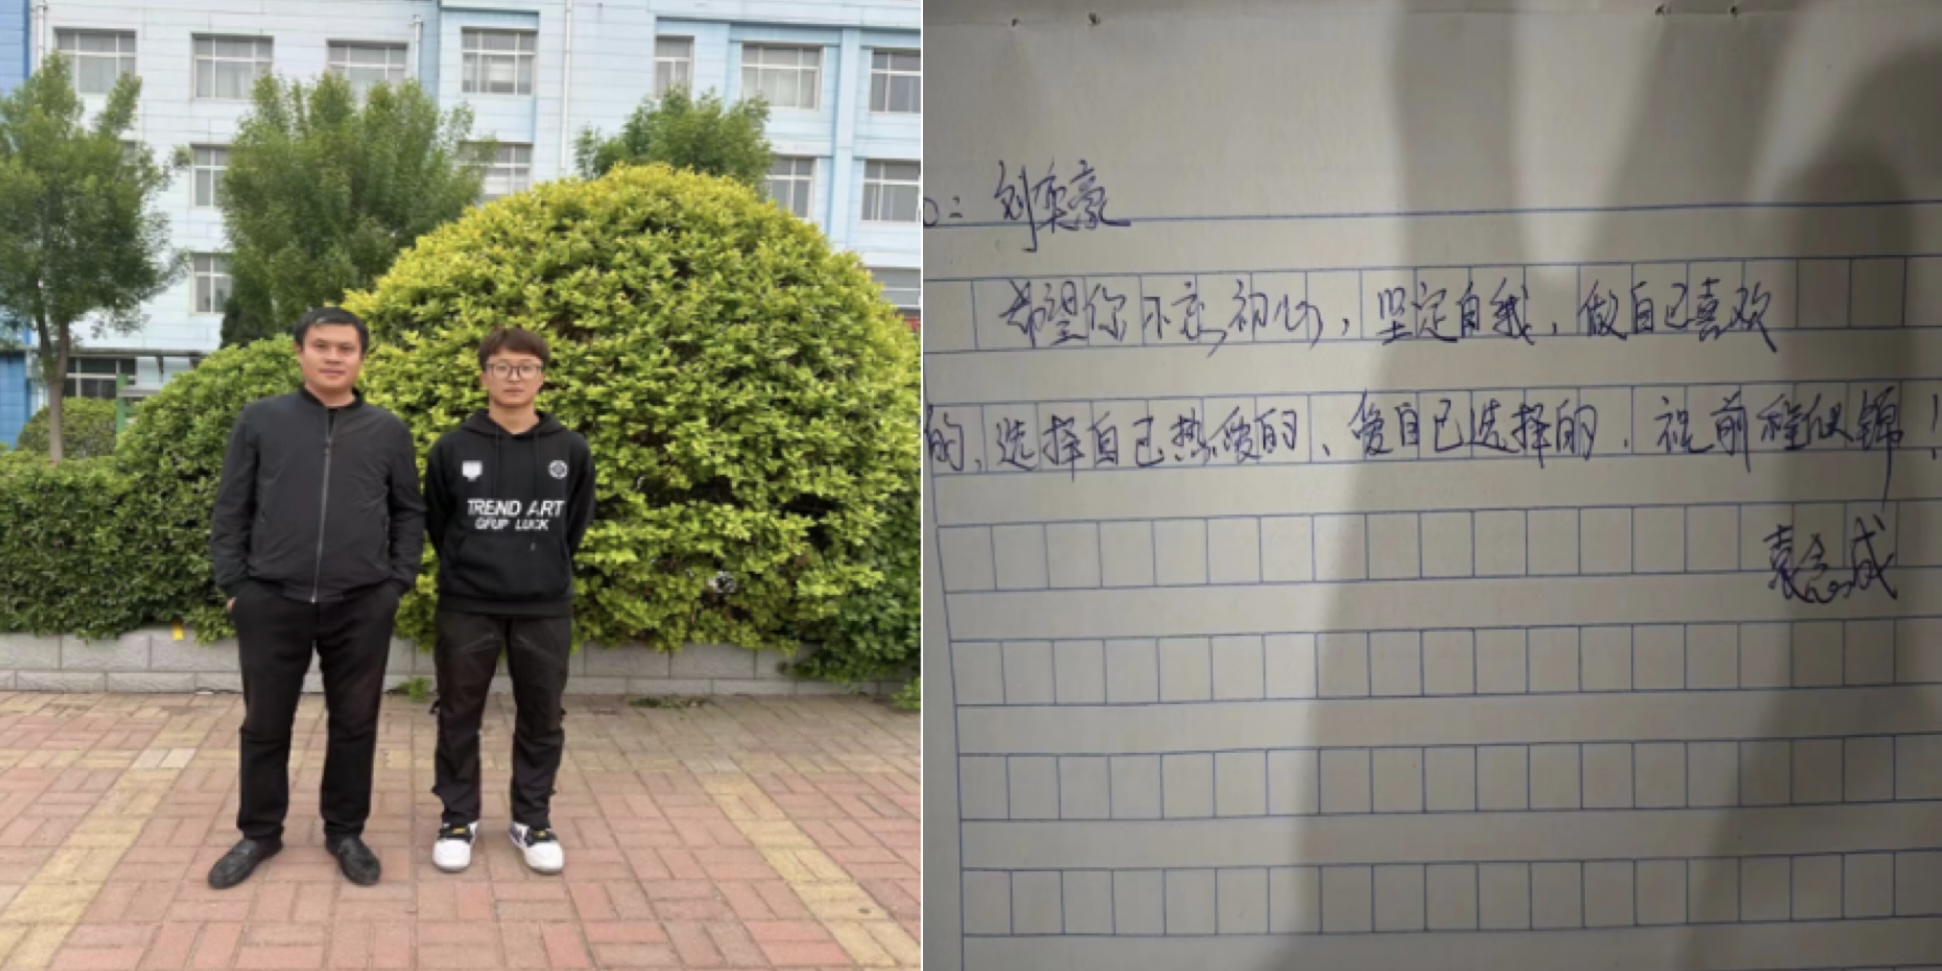 TREND ART
GFUP LUCK
To: 刘奕豪
希望你不忘初心，坚定自我，做自己喜欢
的，选择自己热爱的、爱自己选择的，祝前程似锦！
袁志成